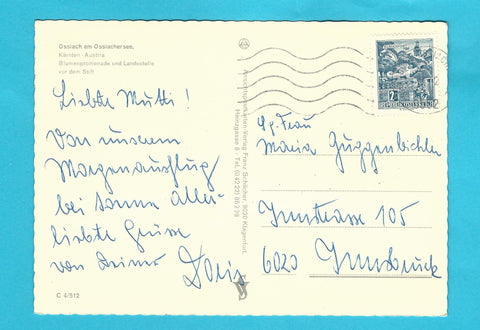 Ossiach am Ossiachersee,
Kärnten - Austria
Blumenpromenade und Landestelle
vor dem Stift
Liebste Mutti!
Von unserem
Morgenausflug
bei Sonne aller-
liebste Grüsse
von Deiner Doris
C 4/512
Ansichtspostkarten-Verlag Franz Schilcher, 9020 Klagenfurt,
REPUBLIK ÖSTERREICH
Maria Guggenbichler
Innstrasse 105
6020 Innsbruck